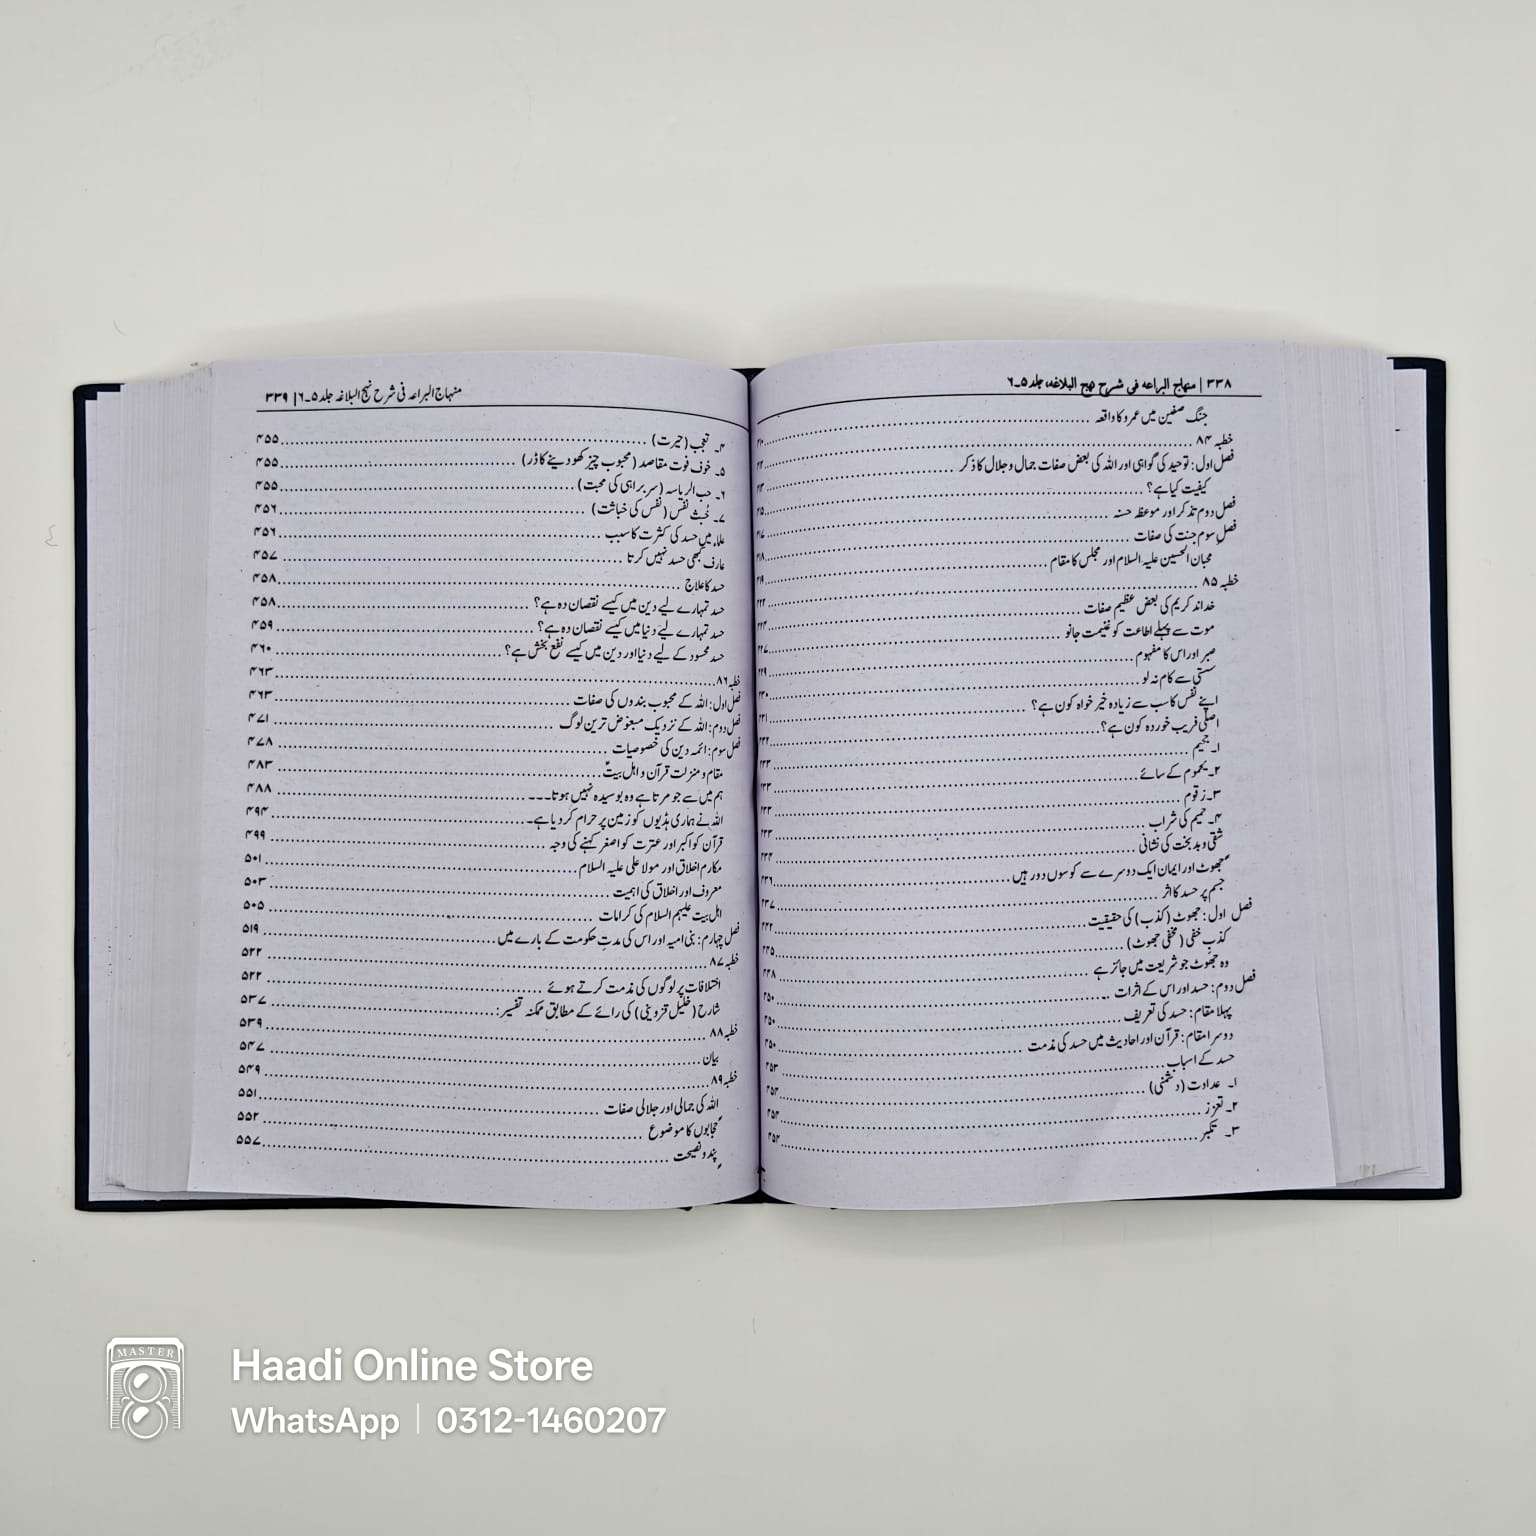 ۳۳۸ | منہاج البراعہ فی شرح نہج البلاغہ، جلد ۵-۶
جنگ صفین میں عمرو کا واقعہ
خطبہ ۸۴
فصل اول: توحید کی گواہی اور اللہ کی بعض صفات جمال و جلال کا ذکر
کیفیت کیا ہے؟
فصل دوم تذکر اور موعظہ حسنہ
فصل سوم جنت کی صفات
محبان الحسین علیہ السلام اور مجلس کا مقام
خطبہ ۸۵
خداند کریم کی بعض عظیم صفات
موت سے پہلے اطاعت کو غنیمت جانو
صبر اور اس کا مفہوم
سستی سے کام نہ لو
اپنے نفس کا سب سے زیادہ خیر خواہ کون ہے؟
اصلی فریب خوردہ کون ہے؟
۱۔ جحیم
۲۔ یحموم کے سائے
۳۔ زقوم
۴۔ حمیم کی شراب
شقی و بد بخت کی نشانی
جھوٹ اور ایمان ایک دوسرے سے کوسوں دور ہیں
جسم پر حسد کا اثر
فصل اول: جھوٹ (کذب) کی حقیقیت
کذب خفی (مخفی جھوٹ)
وہ جھوٹ جو شریعت میں جائز ہے
فصل دوم: حسد اور اس کے اثرات
پہلا مقام: حسد کی تعریف
دوسرا مقام: قرآن اور احادیث میں حسد کی مذمت
حسد کے اسباب
۱۔ عداوت (دشمنی)
۲۔ تعزز
۳۔ تکبر
منہاج البراعہ فی شرح نہج البلاغہ جلد ۵-۶ | ۳۳۹
۴۔ تعجب (حیرت) ۴۵۵
۵۔ خوف فوت مقاصد (محبوب چیز کھو دینے کا ڈر) ۴۵۵
۶۔ حب الریاسہ (سربراہی کی محبت) ۴۵۵
۷۔ خُبث نفس (نفس کی خباثت) ۴۵۶
علماء میں حسد کی کثرت کا سبب ۴۵۶
عارف کبھی حسد نہیں کرتا ۴۵۷
حسد کا علاج ۴۵۸
حسد تمہارے لیے دین میں کیسے نقصان دہ ہے؟ ۴۵۸
حسد تمہارے لیے دنیا میں کیسے نقصان دہ ہے؟ ۴۵۹
حسد محسود کے لیے دنیا اور دین میں کیسے نفع بخش ہے؟ ۴۶۰
خطبہ ۸۶ ۴۶۳
فصل اول: اللہ کے محبوب بندوں کی صفات ۴۶۳
فصل دوم: اللہ کے نزدیک مبغوض ترین لوگ ۴۷۱
فصل سوم: ائمہ دین کی خصوصیات ۴۷۸
مقام و منزلت قرآن و اہل بیتؑ ۴۸۳
ہم میں سے جو مرتا ہے وہ بوسیدہ نہیں ہوتا۔۔۔ ۴۸۸
اللہ نے ہماری ہڈیوں کو زمین پر حرام کر دیا ہے۔ ۴۹۴
قرآن کو اکبر اور عترت کو اصغر کہنے کی وجہ ۴۹۹
مکارم اخلاق اور مولا علی علیہ السلام ۵۰۱
معروف اور اخلاق کی اہمیت ۵۰۳
اہل بیت علیہم السلام کی کرامات ۵۰۵
فصل چہارم: بنی امیہ اور اس کی مدتِ حکومت کے بارے میں ۵۱۹
خطبہ ۸۷ ۵۲۲
اختلافات پر لوگوں کی مذمت کرتے ہوئے ۵۲۲
شارح (خلیل قزوینی) کی رائے کے مطابق ممکنہ تفسیر: ۵۳۷
خطبہ ۸۸ ۵۳۹
بیان ۵۴۷
خطبہ ۸۹ ۵۴۹
اللہ کی جمالی اور جلالی صفات ۵۵۱
حجابوں کا موضوع ۵۵۲
پند و نصیحت ۵۵۷
MASTER
Haadi Online Store
WhatsApp | 0312-1460207